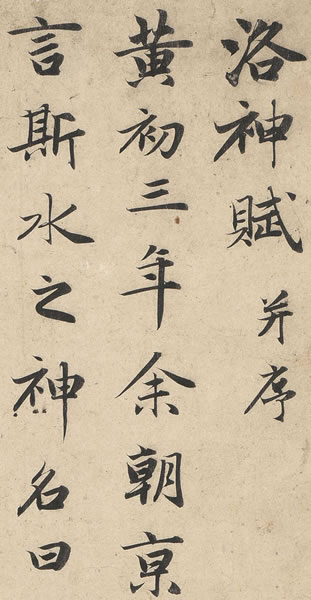 洛神賦并序
黃初三年余朝京
言斯水之神名曰